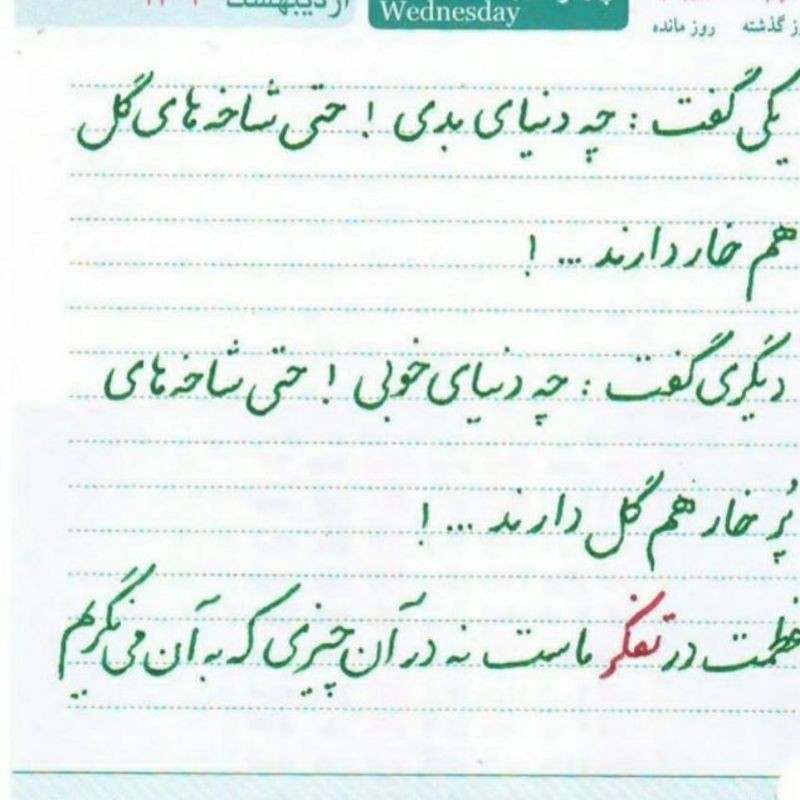 اردیبهشت
Wednesday
روز گذشته روز مانده
یکی گفت : چه دنیای بدی ! حتی شاخه های گل
هم خار دارند ... !
دیگری گفت : چه دنیای خوبی ! حتی شاخه های
پُر خار هم گل دارند ... !
عظمت در تفکر ماست نه در آن چیزی که به آن می نگریم